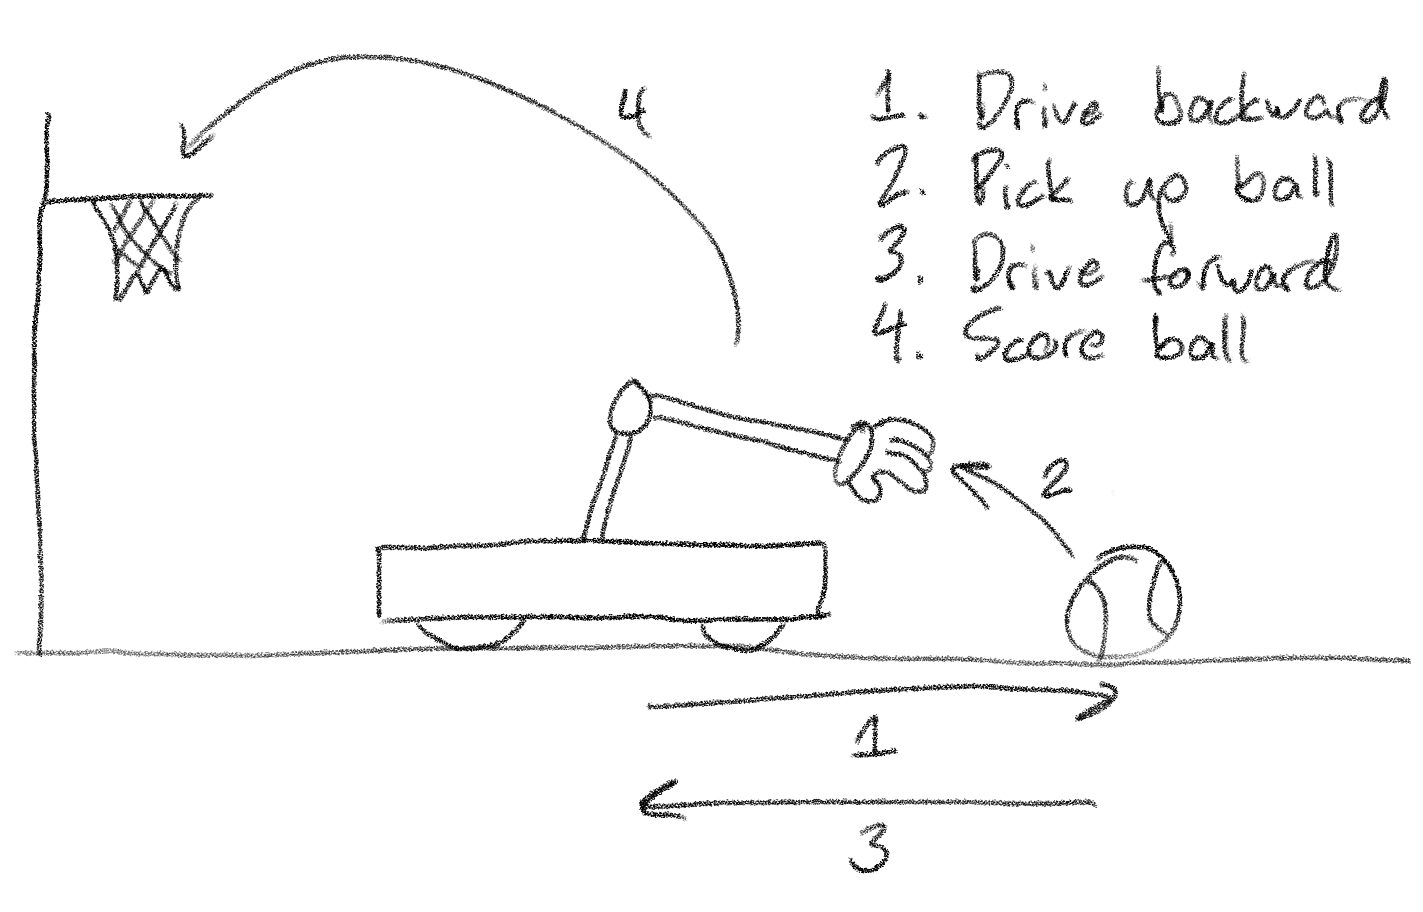 4
1. Drive backward
2. Pick up ball
3. Drive forward
4. Score ball
2
1
3